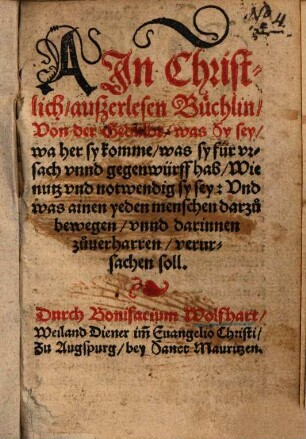 No 4.
AJn Christ-
lich/außerlesen Büchlin/
Von der Gedulde/was sy sey/
wa her sy komme/was sy für vr-
sach vnnd gegenwürff hab/Wie
nutz vnd notwendig sy sey: Vnd
was ainen yeden menschen darzů
bewegen/vnnd darinnen
zůuerharren/verur-
sachen soll.
Durch Bonifacium Wolfhart/
Weiland Diener im̃ Euangelio Christi/
Zu Augspurg/bey Sanct Mauritzen.